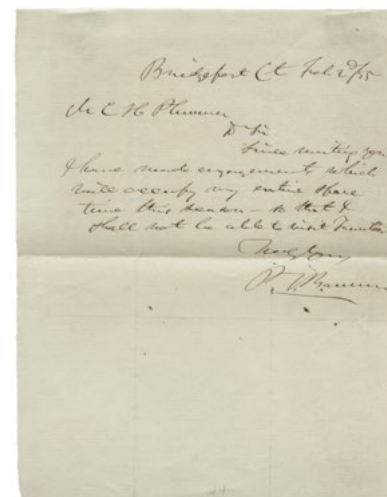 Bridgeport Ct Feb 2d/55
Mr C H Plummer
D Sir
Since writing you
I have made engagements which
will occupy my entire spare
time this season – so that I
shall not be able to visit Taunton
Truly yours
P. T. Barnum